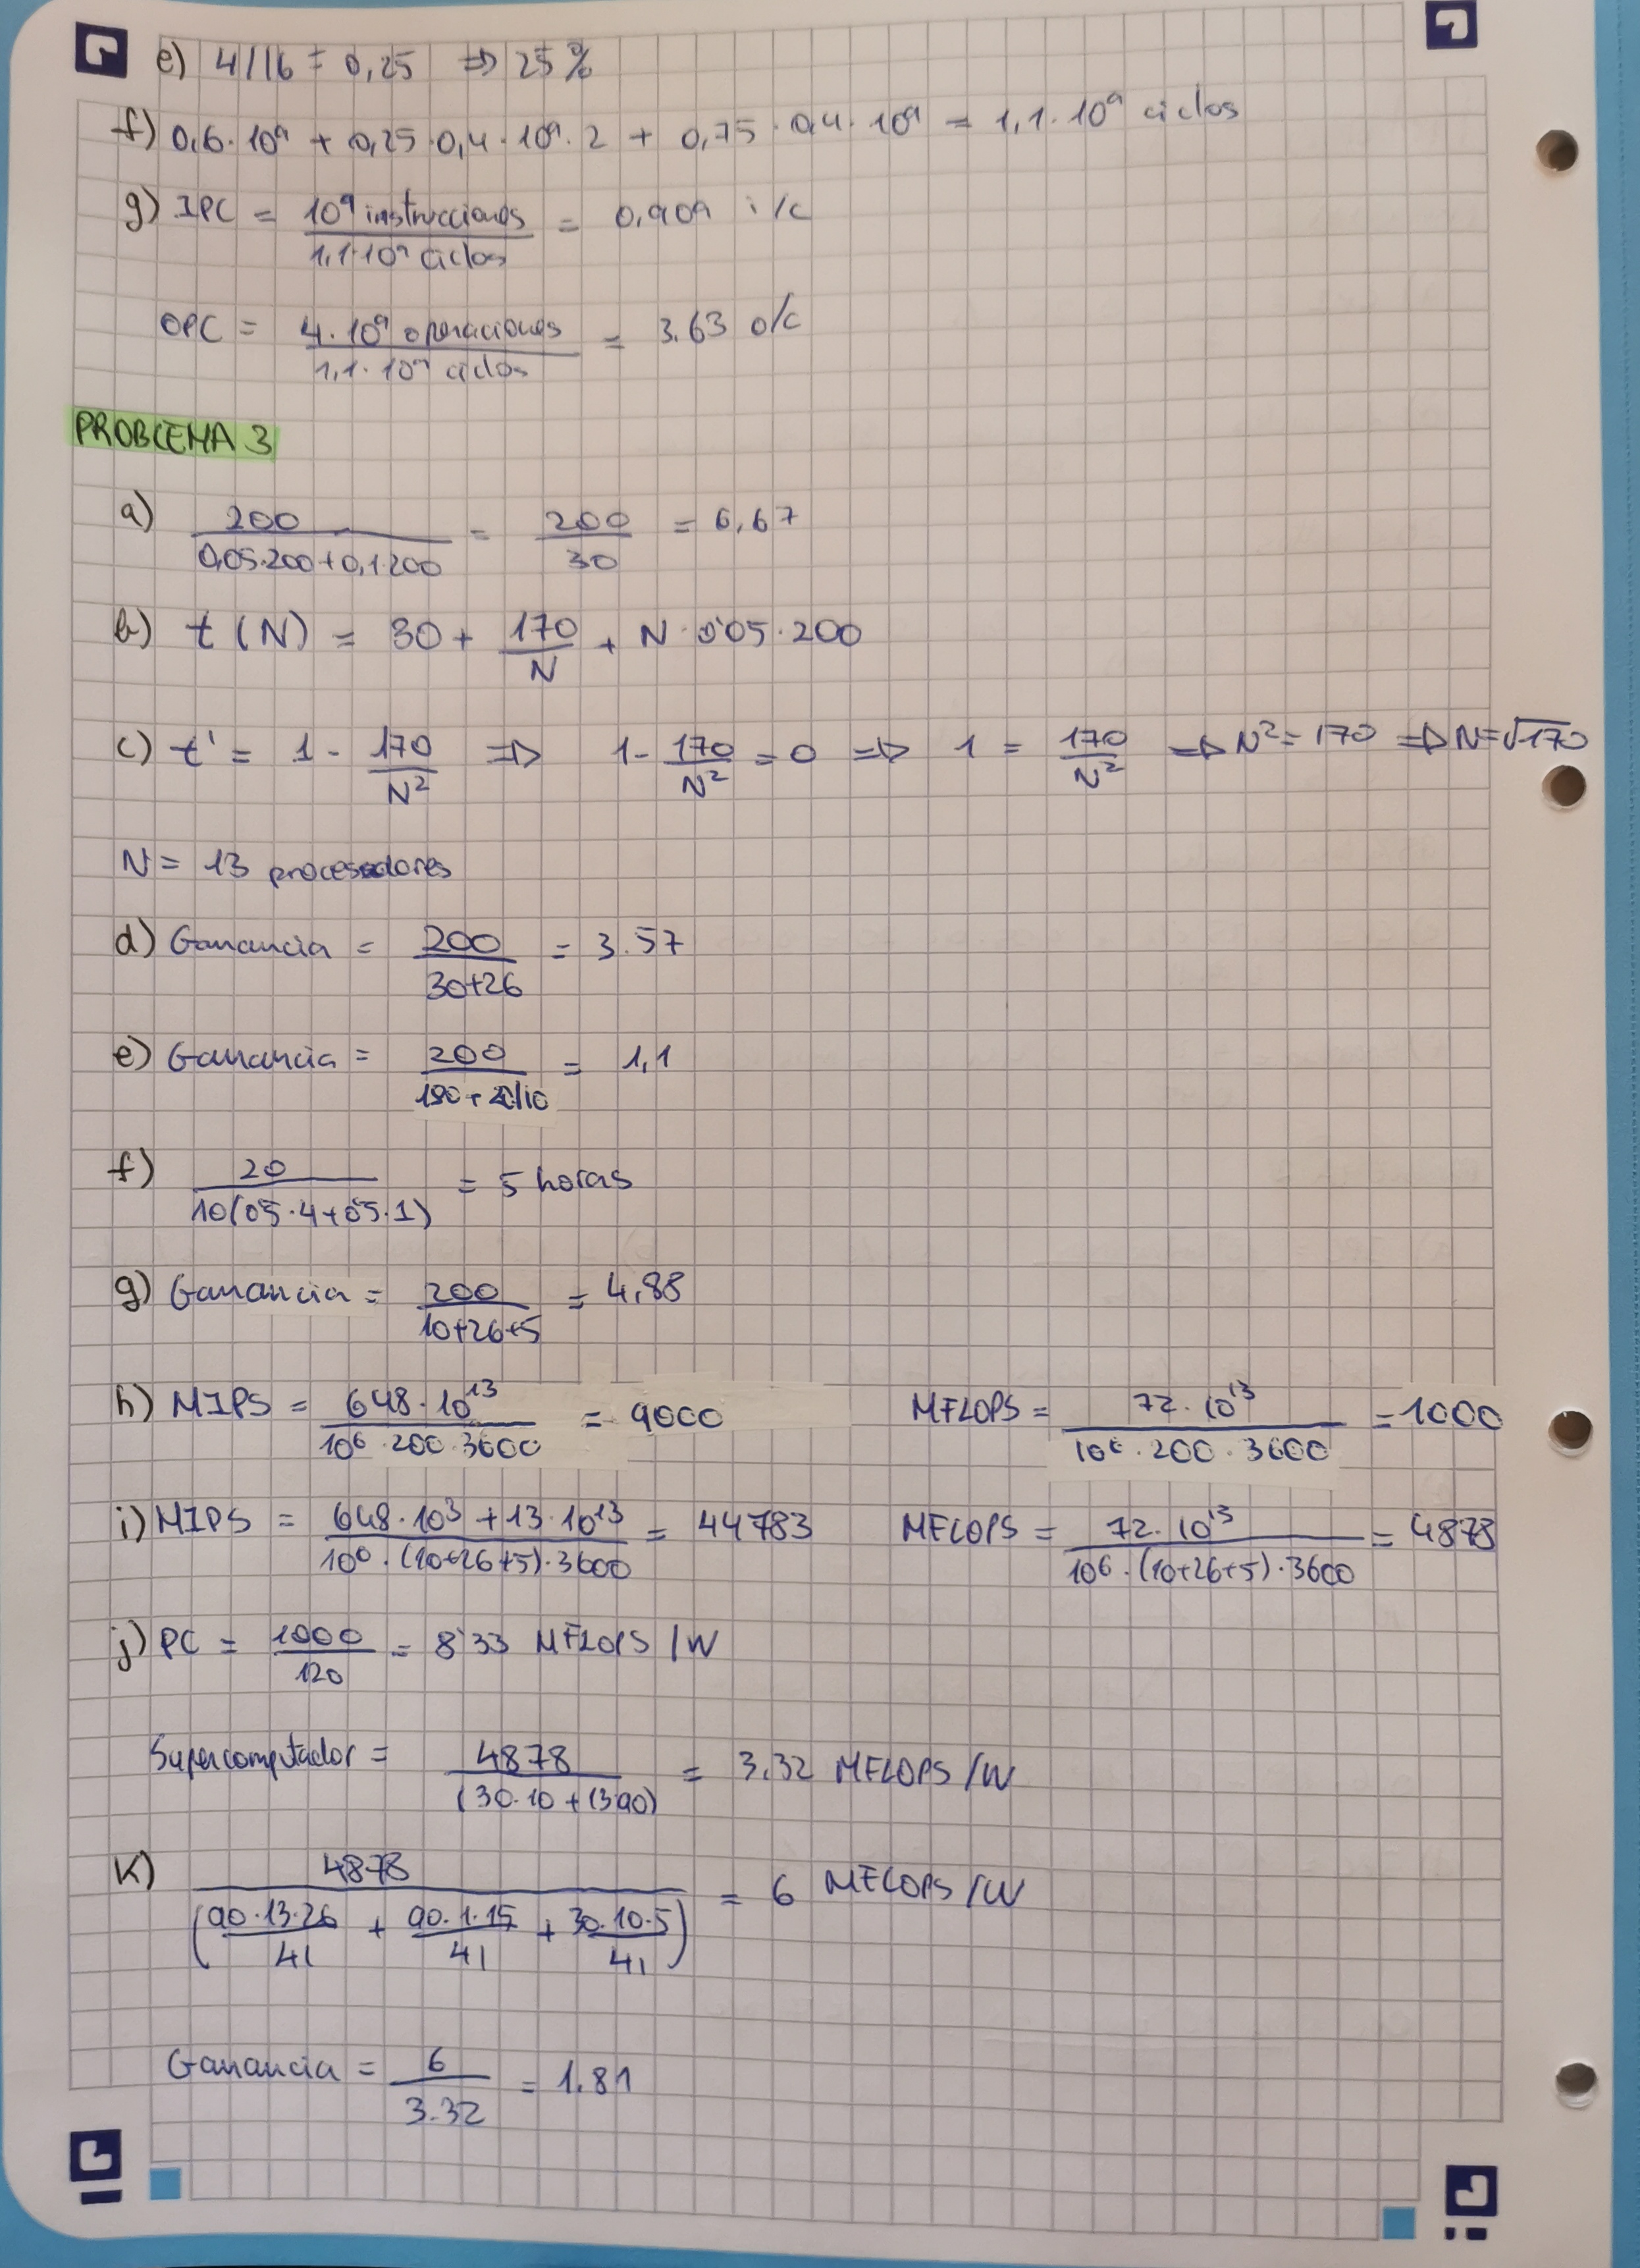 e) 4/16 = 0,25 => 25%
f) 0,6·10⁹ + 0,25·0,4·10⁹·2 + 0,75·0,4·10⁹ = 1,1·10⁹ ciclos
g) IPC = 10⁹ instrucciones / 1,1·10⁹ ciclos = 0,909 i/c
OPC = 4·10⁹ operaciones / 1,1·10⁹ ciclos = 3.63 o/c
PROBLEMA 3
a) 200 / (0,05·200+0,1·200) = 200/30 = 6,67
b) t(N) = 30 + 170/N + N·0'05·200
c) t' = 1 - 170/N² => 1 - 170/N² = 0 => 1 = 170/N² => N² = 170 => N = √170
N = 13 procesadores
d) Ganancia = 200 / (30+26) = 3.57
e) Ganancia = 200 / (180+20/10) = 1,1
f) 20 / 10(0'5·4+0'5·1) = 5 horas
g) Ganancia = 200 / (10+26+5) = 4,88
h) MIPS = 648·10¹³ / 10⁶·200·3600 = 9000 MFLOPS = 72·10¹³ / 10⁶·200·3600 = 1000
i) MIPS = 648·10³ + 13·10¹³ / 10⁶·(10+26+5)·3600 = 44783 MFLOPS = 72·10¹³ / 10⁶·(10+26+5)·3600 = 4878
j) PC = 1000/120 = 8'33 MFLOPS/W
Supercomputador = 4878 / (30·10+13·90) = 3.32 MFLOPS/W
k) 4878 / (90·13·26/41 + 90·1·15/41 + 30·10·5/41) = 6 MFLOPS/W
Ganancia = 6/3.32 = 1.81